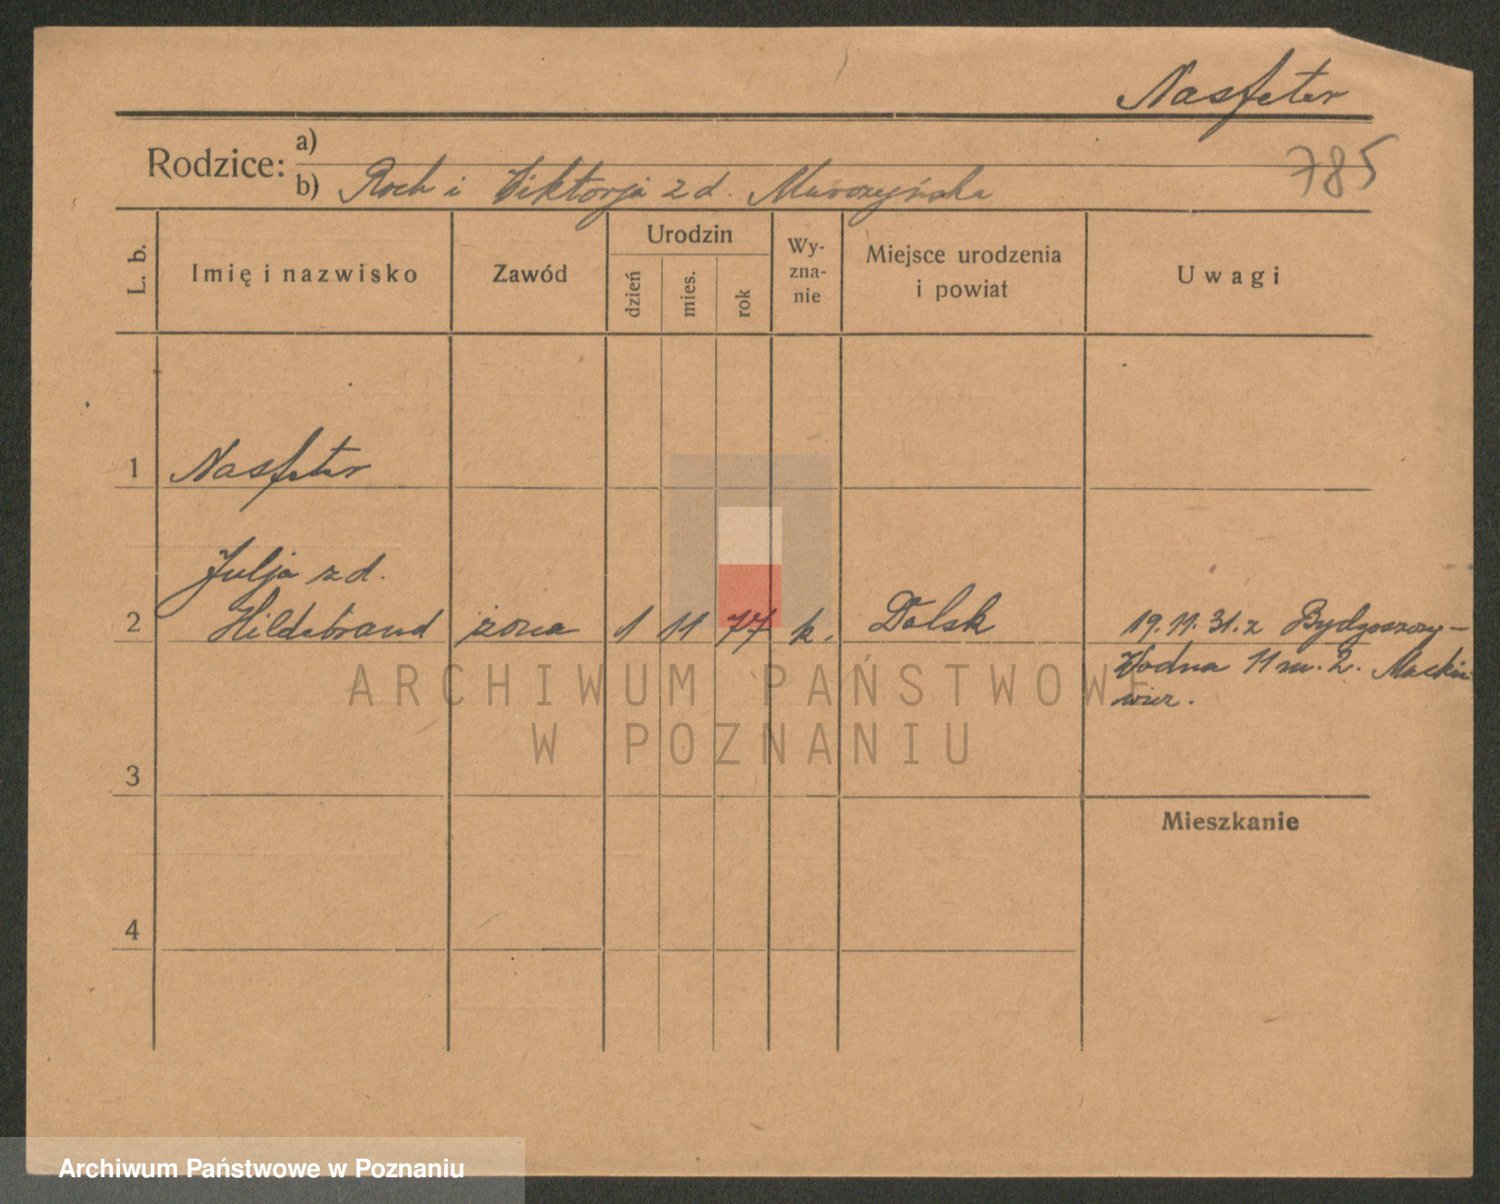 Nasfeter
785
Rodzice: a)
b) Roch i Wiktorja z d. Murczyńska
L. b.
Imię i nazwisko
Zawód
Urodzin
dzień
mies.
rok
Wy-
zna-
nie
Miejsce urodzenia
i powiat
Uwagi
1 Nasfeter
Julja z d.
2 Hildebrand żona 1 11 77 k. Dolsk 19.11.31. z Bydgoszczy –
Wodna 11 m. 2.
3
Mieszkanie
4
ARCHIWUM PAŃSTWOWE
W POZNANIU
Archiwum Państwowe w Poznaniu